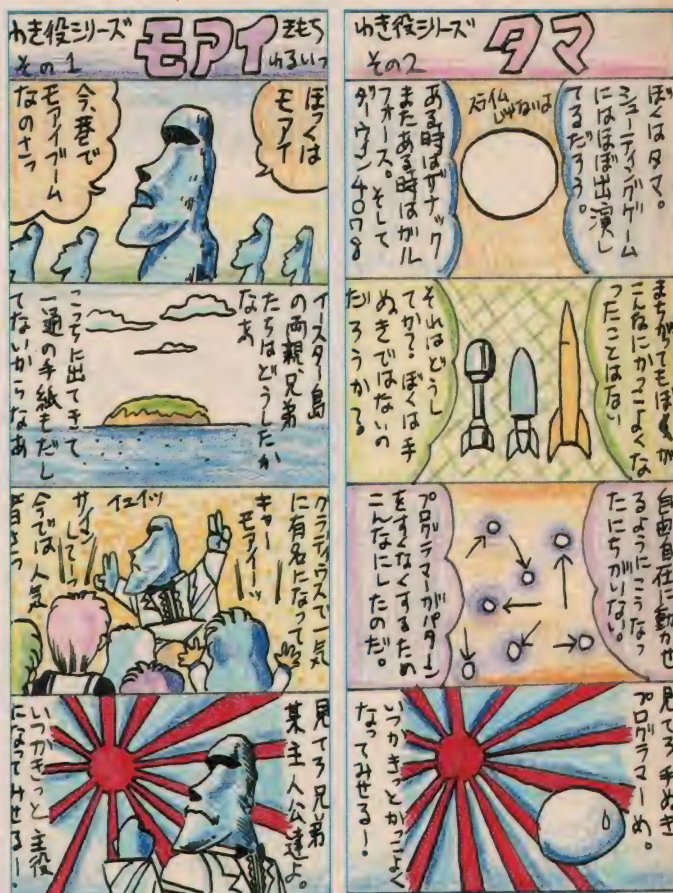 わき役シリーズ
その1
モアイ
きもち
わるいっ
ぼっくは
モアイ
今、巷で
モアイブーム
なのさっ
イースター島
の両親、兄弟
たちはどうしたか
なあ
こっちに出てきて
一通の手紙もだし
てないからなあ
グラディウスで一気
に有名になってっ
キャー
モアイーッ
イエイッ
サイン
してーっ
今では人気
者さっ
見てろ兄弟
某主人公達よ。
いつかきっと主役
になってみせるー!
わき役シリーズ
その2
タマ
ぼくはタマ。
シューティングゲーム
にはほぼ出演し
てるだろう。
スライム
じゃないよ
ある時はザナック
またある時はガル
フォース。そして
ダーウィン4078
まちがってもぼくが
こんなにかっこよくな
ったことはない
それはどうし
てか?ぼくは手
ぬきではないの
だろうか?
自由自在に動かせ
るようにこうなっ
たにちがいない。
プログラマーがパターン
をすくなくするため
こんなにしたのだ。
見てろ手ぬき
プログラマーめ。
いつかきっとかっこよく
なってみせるー!